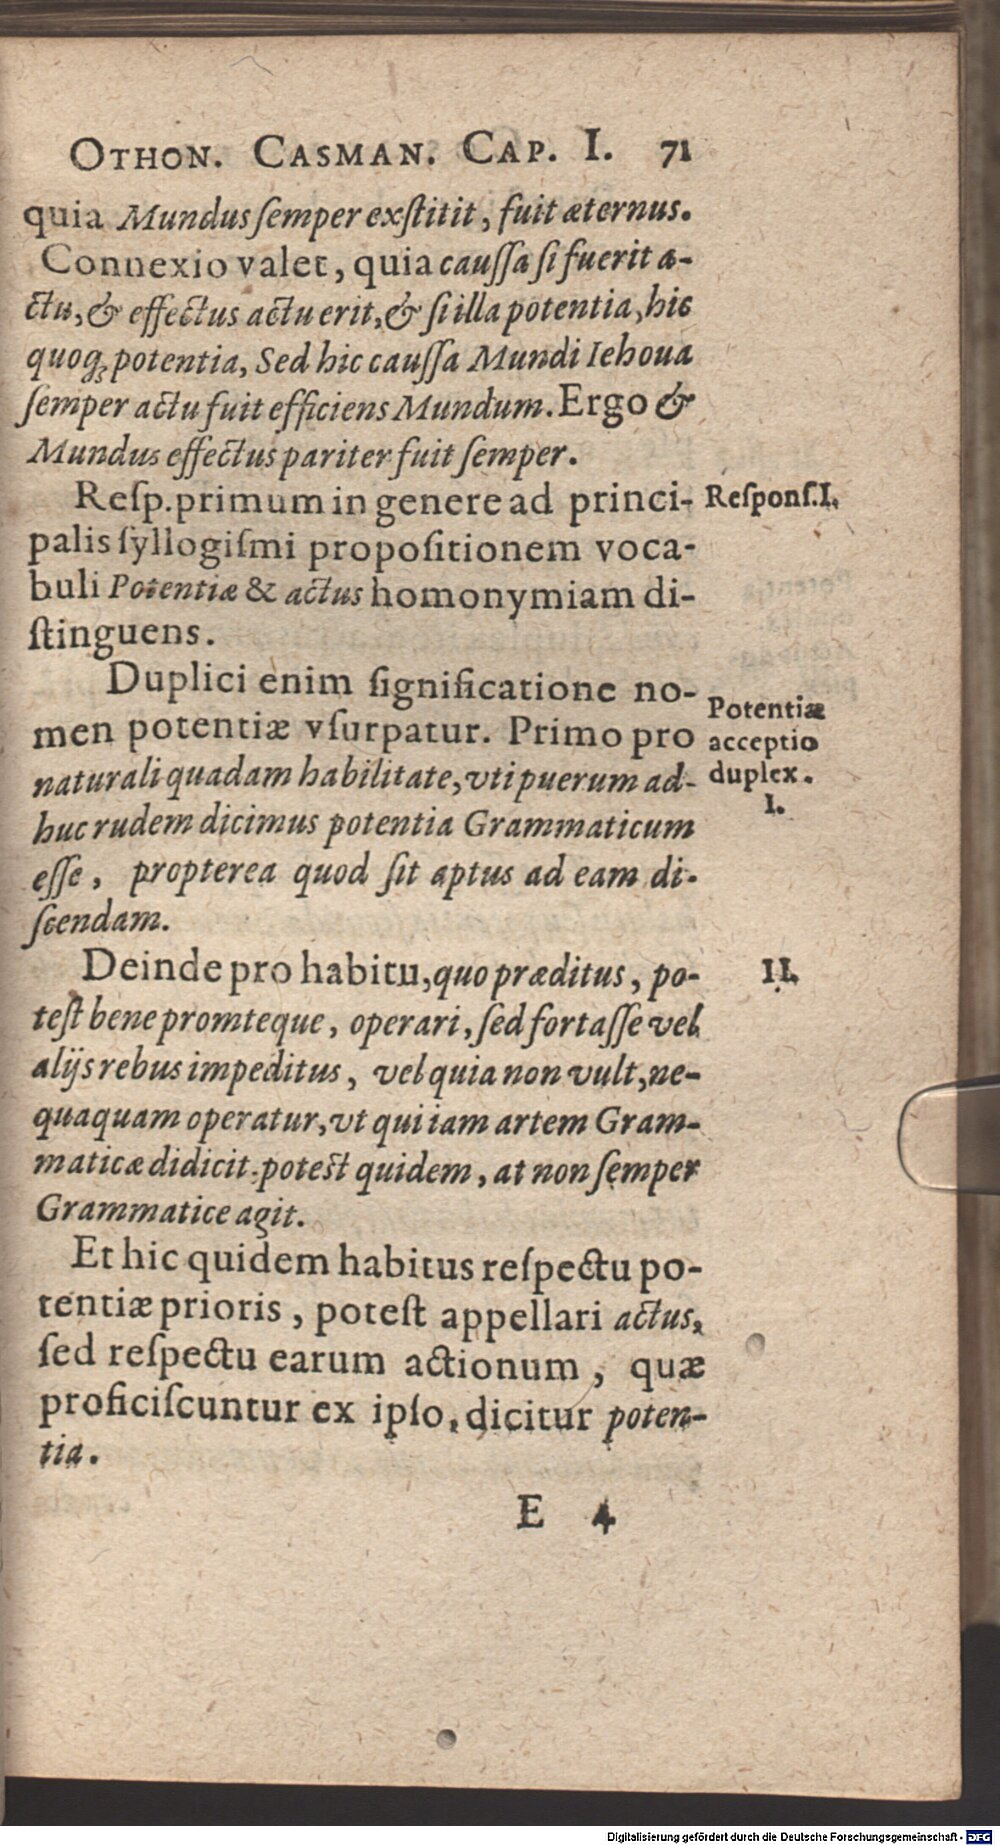 OTHON. CASMAN. CAP. I. 71
quia Mundus ſemper exſtitit, fuit æternus.
Connexio valet, quia cauſſa ſi fuerit a-
ctu, & effectus actu erit, & ſi illa potentia, hic
quoq; potentia, Sed hic cauſſa Mundi Iehoua
ſemper actu fuit efficiens Mundum. Ergo &
Mundus effectus pariter fuit ſemper.
Reſp. primum in genere ad princi-
Reſponſ. I.
palis ſyllogiſmi propoſitionem voca-
buli Potentiæ & actus homonymiam di-
ſtinguens.
Duplici enim ſignificatione no-
men potentiæ vſurpatur. Primo pro
Potentiæ
acceptio
duplex.
I.
naturali quadam habilitate, vti puerum ad-
huc rudem dicimus potentia Grammaticum
eſſe, propterea quod ſit aptus ad eam di-
ſcendam.
Deinde pro habitu, quo præditus, po-
II.
teſt bene promteque, operari, ſed fortaſſe vel
alijs rebus impeditus, vel quia non vult, ne-
quaquam operatur, vt qui iam artem Gram-
maticæ didicit: poteſt quidem, at non ſemper
Grammatice agit.
Et hic quidem habitus reſpectu po-
tentiæ prioris, poteſt appellari actus,
ſed reſpectu earum actionum, quæ
proficiſcuntur ex ipſo, dicitur poten-
tia.
E 4
Digitalisierung gefördert durch die Deutsche Forschungsgemeinschaft - DFG